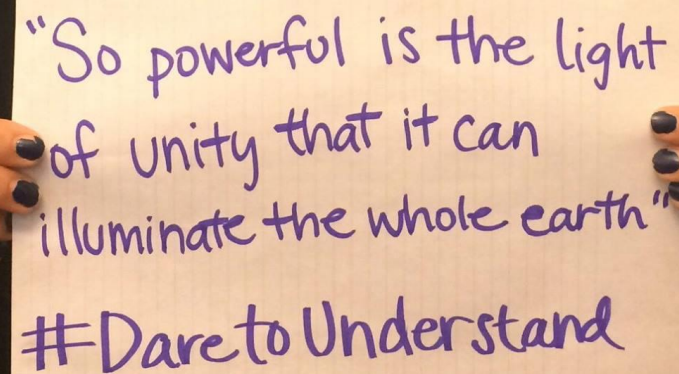 "So powerful is the light
of unity that it can
illuminate the whole earth"
#DaretoUnderstand